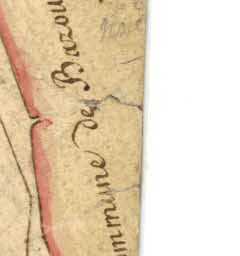 ommune de Bazou